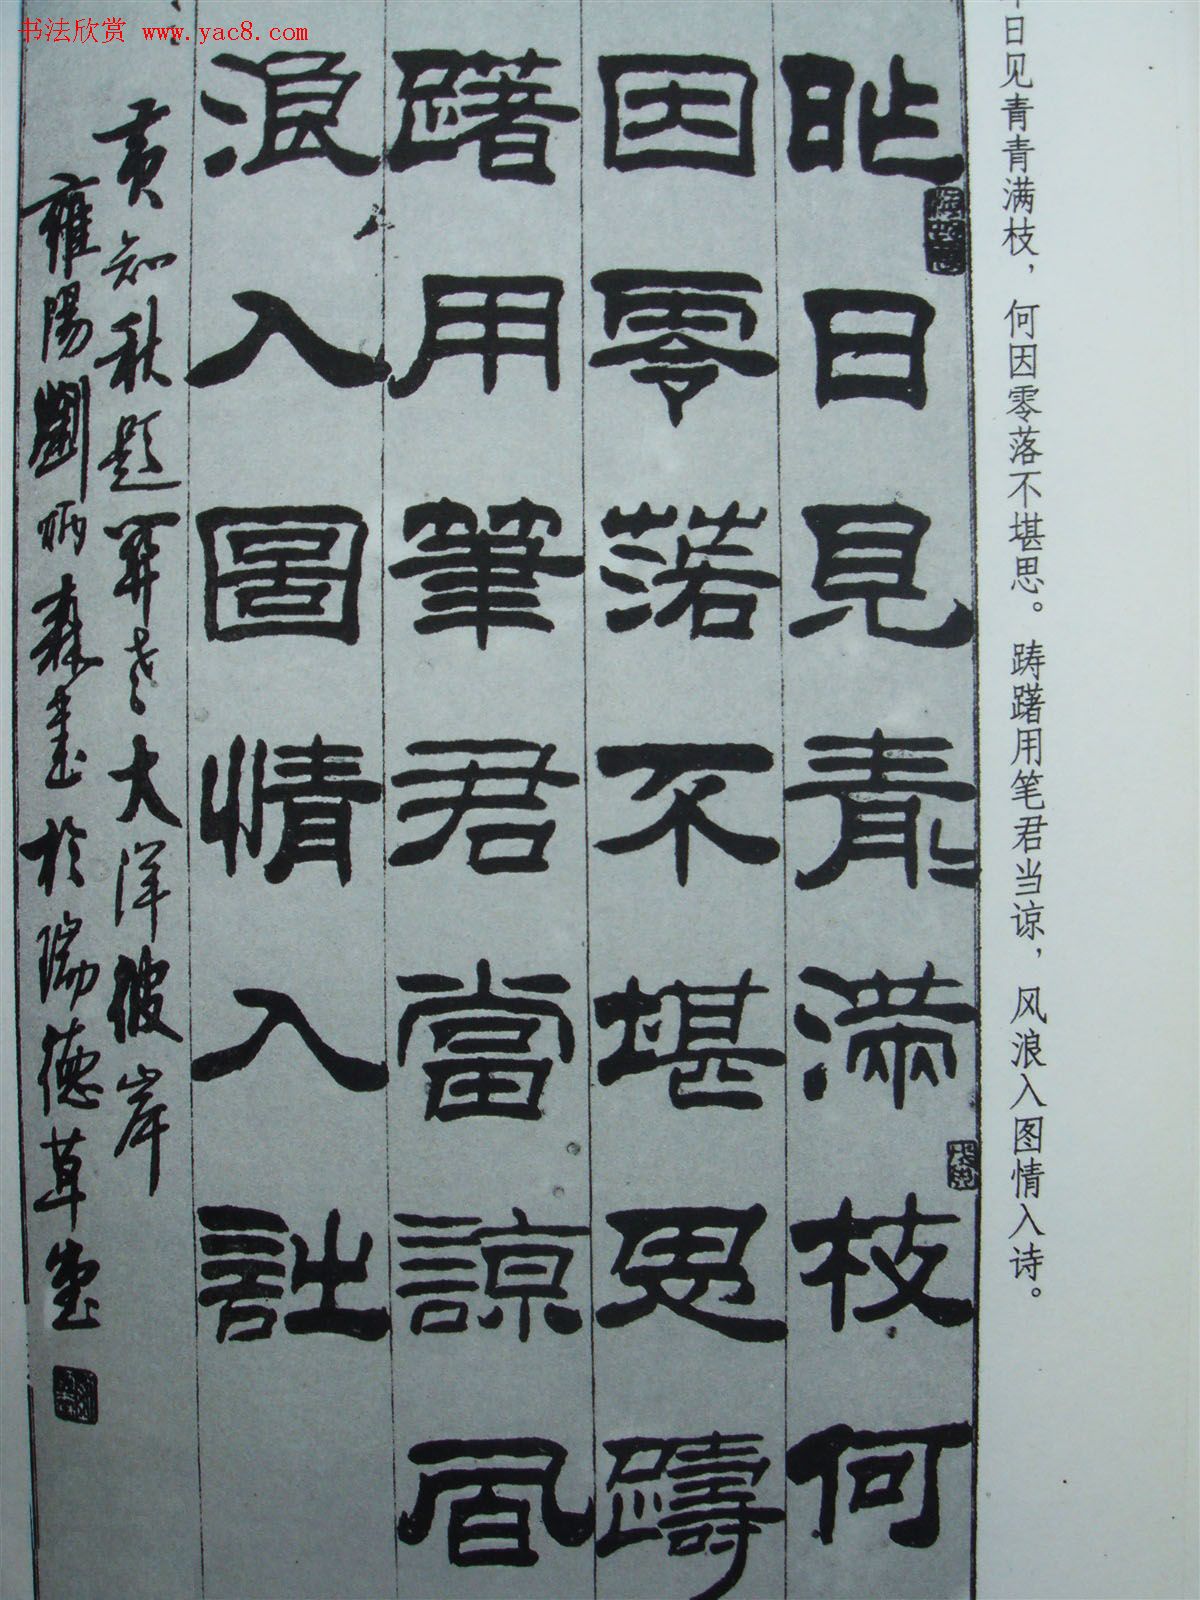 书法欣赏 www.yac8.com
日见青青满枝，何因零落不堪思。踌躇用笔君当谅，风浪入图情入诗。
昨日見青=滿枝何
因零落不堪思躊
躇用筆君當諒風
浪入圖情入詩
黄知秋題 大洋彼岸
雍陽劉炳森書於瑞德草堂